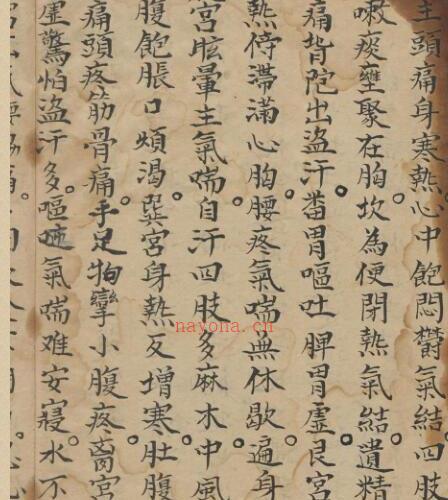 主頭痛身寒熱心中飽悶鬱氣結四肢
嗽痰壅聚在胸坎為便閉熱氣結遺精
痛背陀出盜汗畨胃嘔吐脾胃虛艮宮
熱停滯滿心胸腰疼氣喘無休歇遍身
宮眩暈主氣喘自汗四肢多麻木中風
腹飽脹口煩渴巽宮身熱反增寒肚腹
痛頭疼筋骨痛手足拘攣小腹疼离宮
虛驚怕盜汗多嘔吐氣喘难安寢水不
nayona.cn